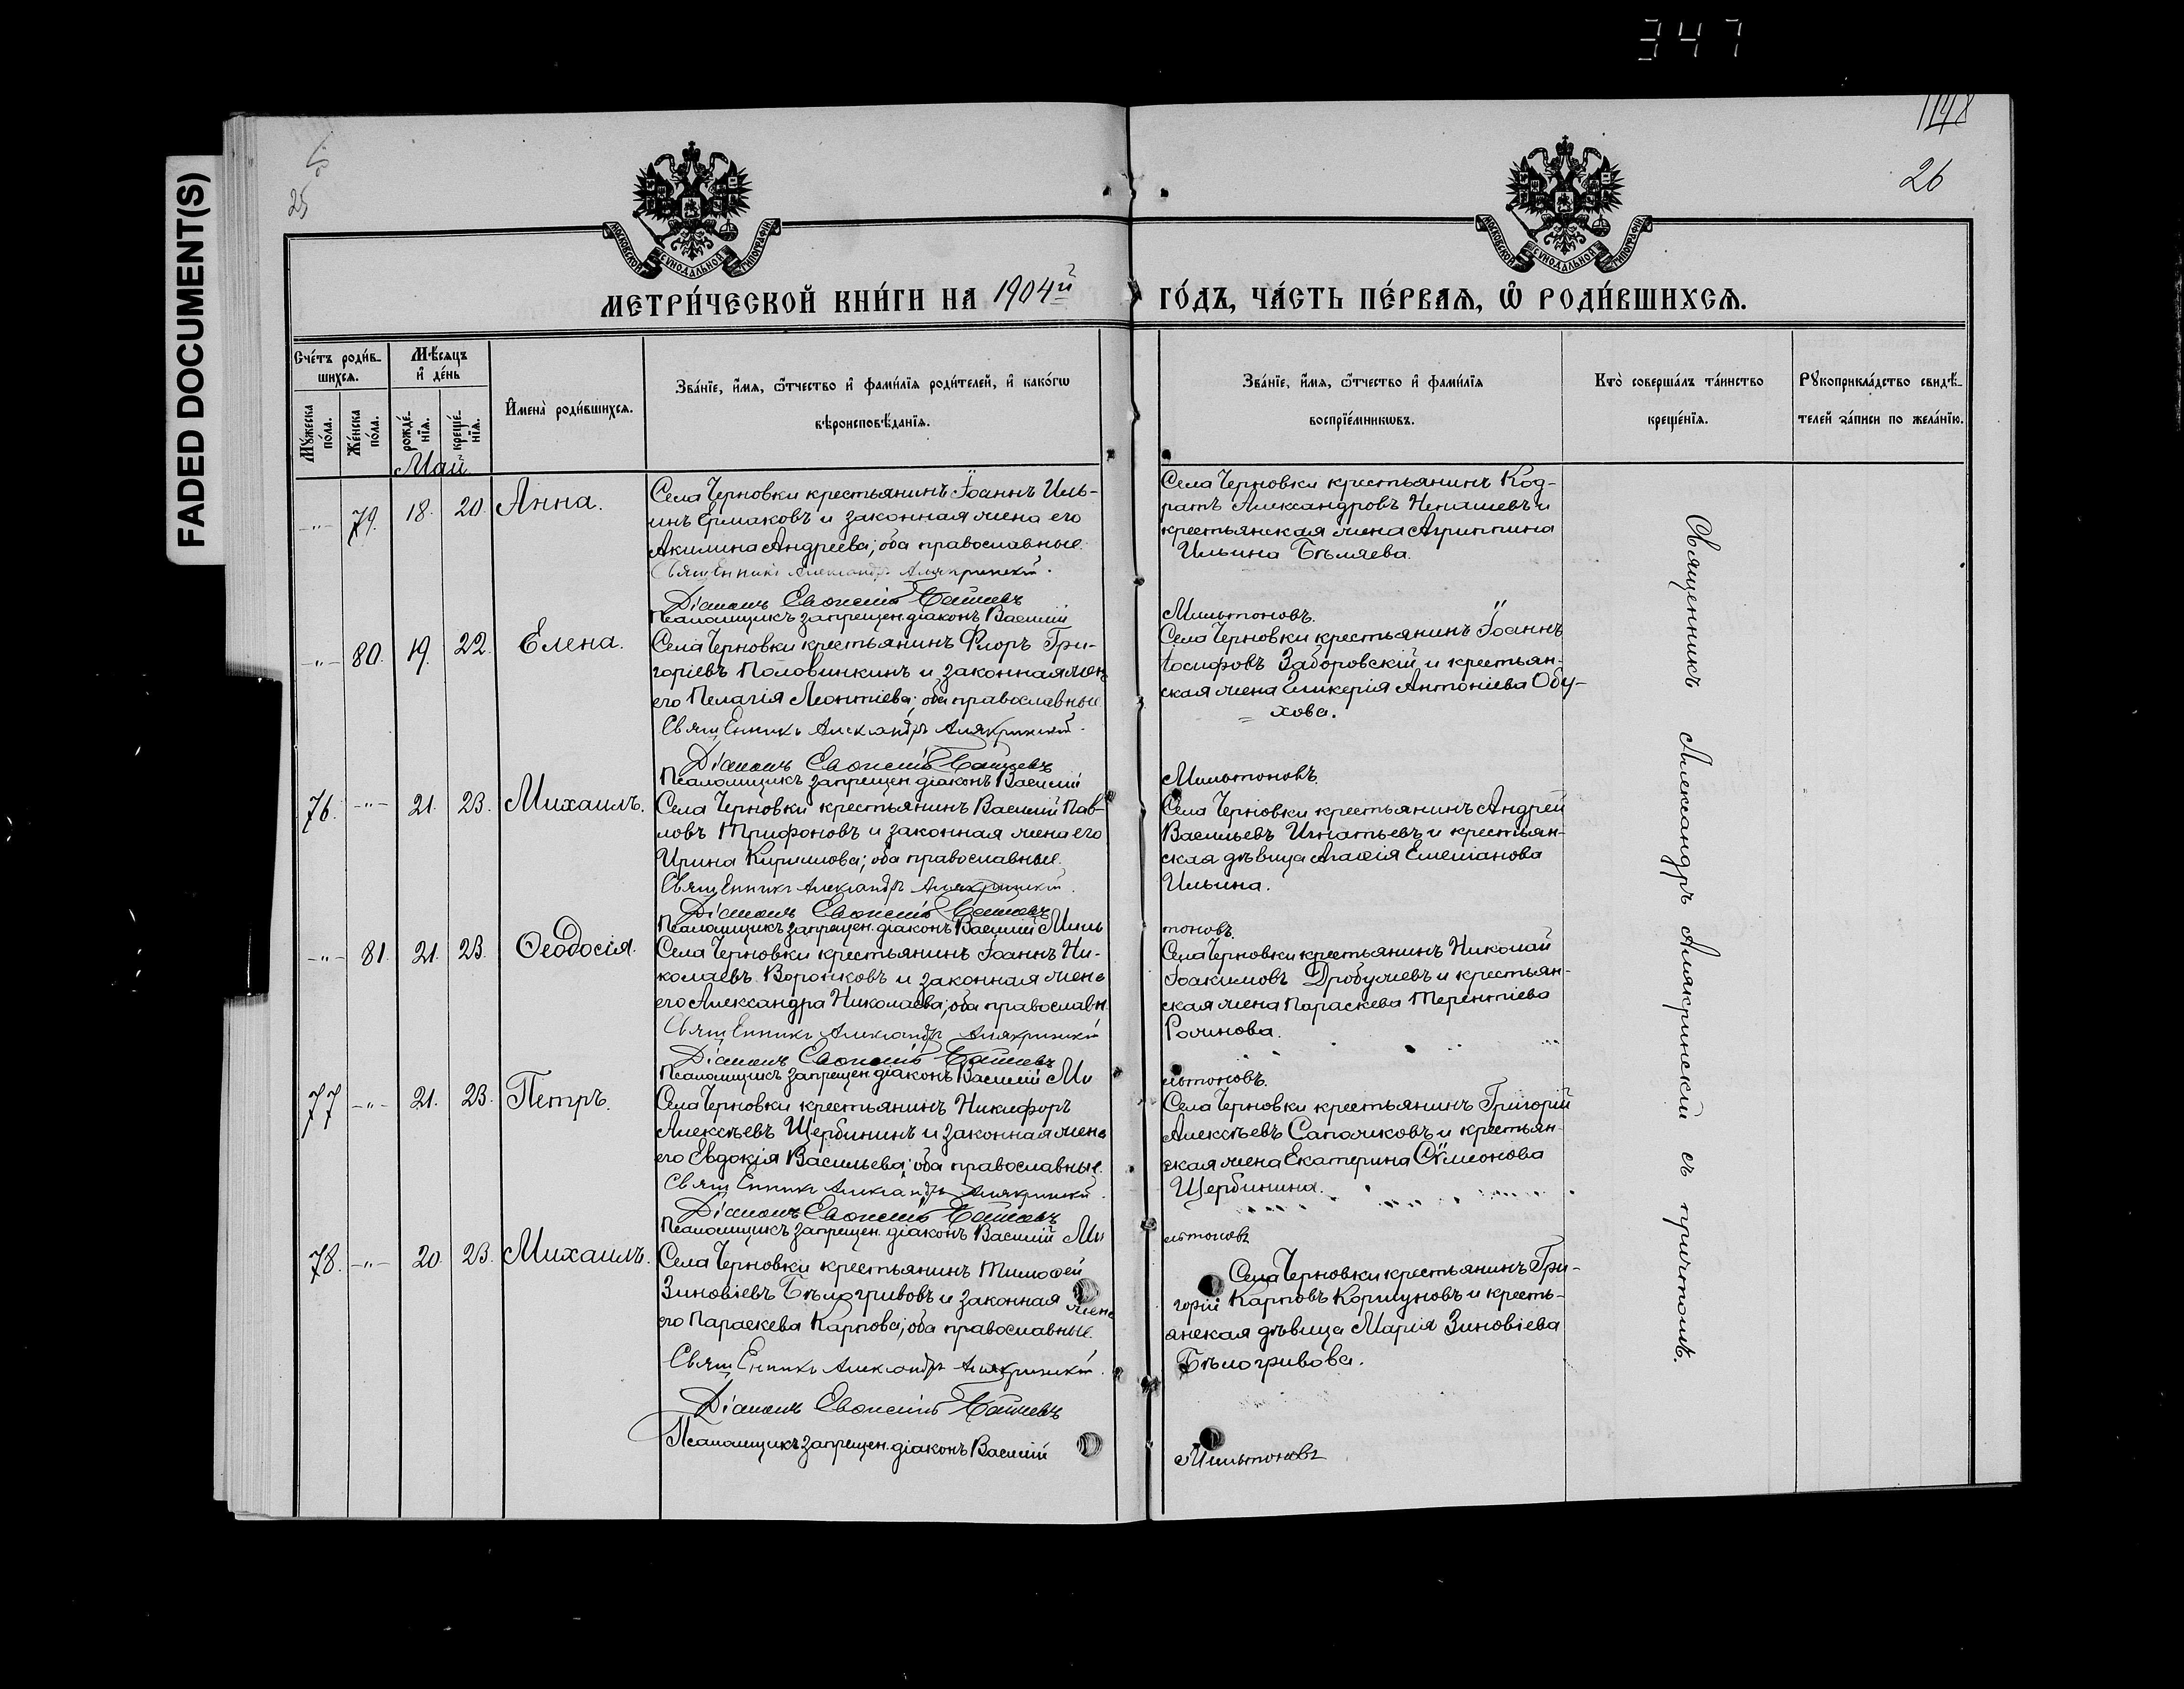 347
FADED DOCUMENT(S)
25
1148
26
МОСКОВСКОЙ СѴНОДАЛЬНОЙ ТИПОГРАФІИ
МОСКОВСКОЙ СѴНОДАЛЬНОЙ ТИПОГРАФІИ
МЕТРИ́ЧЕСКОЙ КНИ́ГИ НА 1904й ГО́ДЪ, ЧА́СТЬ ПЕ́РВАѦ, Ѡ҆ РОДИ́ВШИХСѦ.
Сче́тъ роди́в-
шихсѧ.
Мꙋ́жеска
по́ла.
Же́нска
по́ла.
Мѣ́сѧцъ
и҆ де́нь
рожде́-
нїѧ.
креще́-
нїѧ.
И҆мена̀ роди́вшихсѧ.
Зва́нїе, и҆́мѧ, ѻ҆́тчество и҆ фами́лїѧ роди́телей, и҆ како́гѡ
вѣроисповѣ́данїѧ.
Зва́нїе, и҆́мѧ, ѻ҆́тчество и҆ фами́лїѧ
воспрїе́мникѡвъ.
Кто̀ соверша́лъ та́инство
креще́нїѧ.
Рꙋкоприкла́дство свидѣ́-
телей за́писи по жела́нїю.
Май
-"- 79. 18. 20. Анна.
Села Черновки крестьянинъ Іоаннъ Иль-
инъ Ермаковъ и законная жена его
Акилина Андреева; оба православные.
Священникъ Александръ Алякринскій.
Діаконъ
Псаломщикъ запрещен. діаконъ Василій Мильтоновъ.
Села Черновки крестьянинъ Код-
ратъ Александровъ Ненашевъ и
крестьянская жена Агриппина
Ильина Бѣляева.
-"- 80. 19. 22. Елена.
Села Черновки крестьянинъ Флоръ Гри-
горіевъ Половинкинъ и законная жена
его Пелагія Леонтіева; оба православные
Священникъ Александръ Алякринскій.
Діаконъ
Псаломщикъ запрещен. діаконъ Василій Мильтоновъ.
Села Черновки крестьянинъ Іоаннъ
Іосифовъ Заборовскій и крестьян-
ская жена Гликерія Антоніева Обу-
хова.
76. -"- 21. 23. Михаилъ.
Села Черновки крестьянинъ Василій Пав-
ловъ Трифоновъ и законная жена его
Ирина Кириллова; оба православные.
Священникъ Александръ Алякринскій.
Діаконъ
Псаломщикъ запрещен. діаконъ Василій Мильтоновъ.
Села Черновки крестьянинъ Андрей
Васильевъ Игнатьевъ и крестьян-
ская дѣвица Агафія Емеліанова
Ильина.
-"- 81. 21. 23. Ѳеодосія.
Села Черновки крестьянинъ Іоаннъ Ни-
колаевъ Воронковъ и законная жена
его Александра Николаева; оба православн.
Священникъ Александръ Алякринскій
Діаконъ
Псаломщикъ запрещен. діаконъ Василій Мильтоновъ.
Села Черновки крестьянинъ Николай
Іоакимовъ Дробужевъ и крестьян-
ская жена Параскева Терентіева
Рожнова.
77 -"- 21. 23. Петръ.
Села Черновки крестьянинъ Никифоръ
Алексѣевъ Щербининъ и законная жена
его Евдокія Васильева; оба православные.
Священникъ Александръ Алякринскій.
Діаконъ
Псаломщикъ запрещен. діаконъ Василій Мильтоновъ
Села Черновки крестьянинъ Григорій
Алексѣевъ Сапожковъ и крестьян-
ская жена Екатерина Сѵмеонова
Щербинина.
78. -"- 20. 23. Михаилъ.
Села Черновки крестьянинъ Тимоѳей
Зиновіевъ Бѣлогривовъ и законная жена
его Параскева Карпова; оба православные.
Священникъ Александръ Алякринскій.
Діаконъ
Псаломщикъ запрещен. діаконъ Василій Мильтоновъ
Села Черновки крестьянинъ Гри-
горій Карповъ Коршуновъ и кресть-
янская дѣвица Марія Зиновіева
Бѣлогривова.
Священникъ Александръ Алякринскій съ причтомъ.